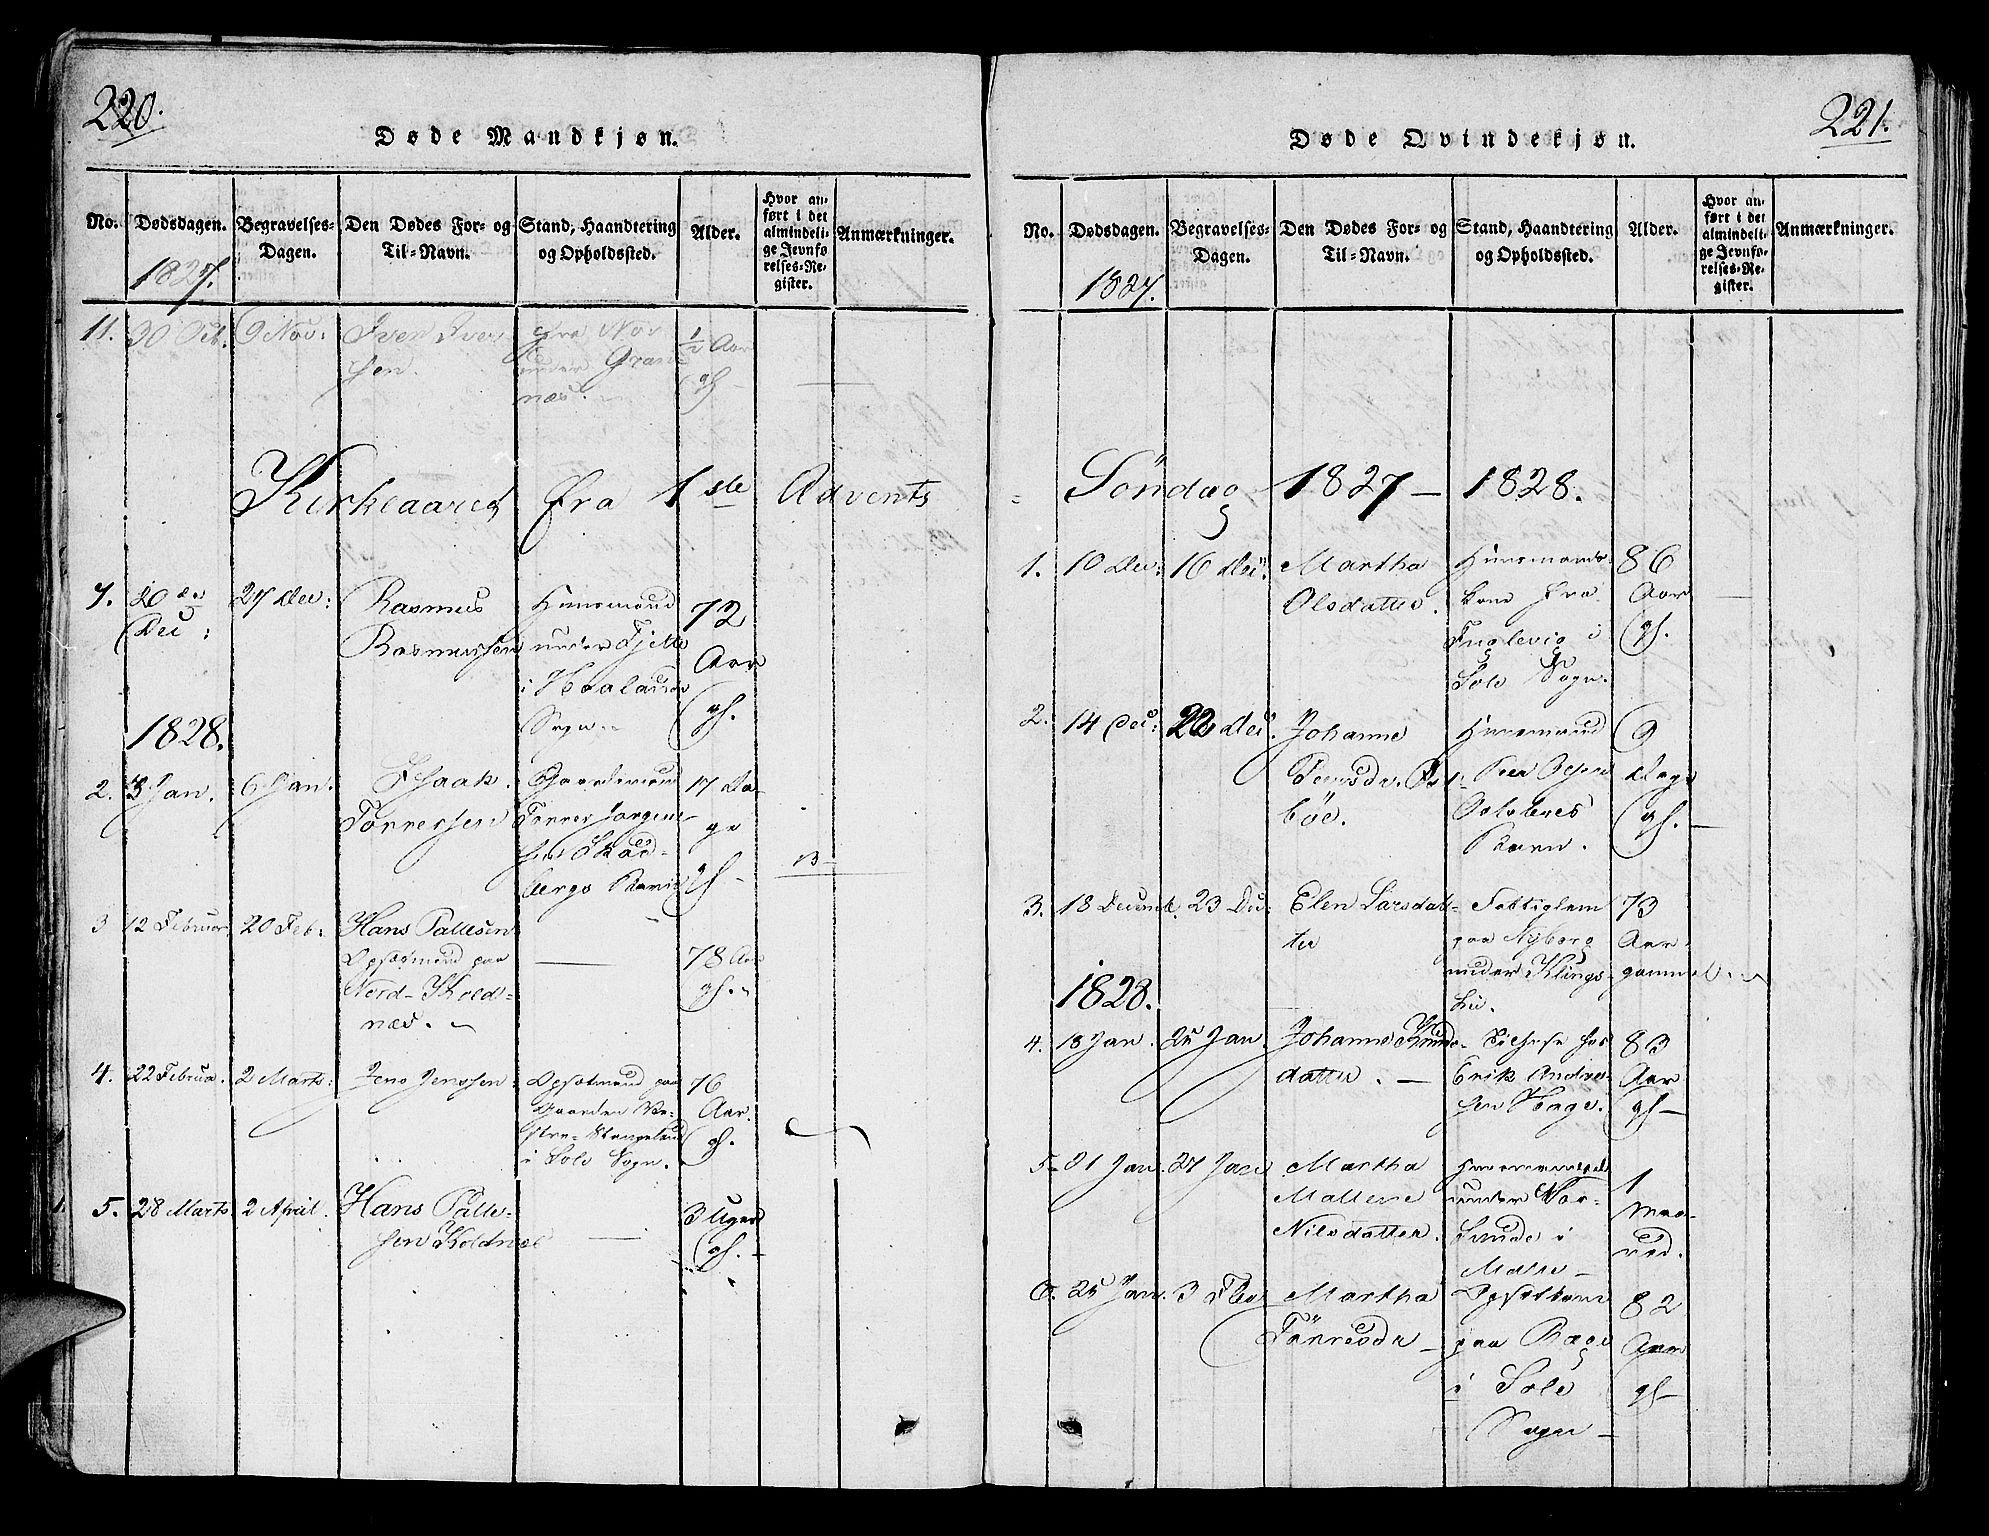 220.
Døde Mandkjøn.
No.
Dødsdagen.
Begravelses-
Dagen.
Den Dødes For- og
Til-Navn.
Stand, Haandtering
og Opholdssted.
Alder.
Hvor an-
ført i det
almindeli-
ge Jevnfø-
relses-Re-
gister.
Anmærkninger.
1827.
11.
30 Oct.
9 Nov:
Iver Iver
sen.
fra Nor
under Gran
næs.
1/2 Aar
gl.
Kirkeaaret fra 1ste Advents
1.
20 de
Dec:
27 Dec:
Rasmus
Rasmussen
Huusmand
under Fjelle
i Haalands
Sogn.
72
Aar
gl.
1828.
2.
3 Jan.
6 Jan.
Isaak
Tørresen
Gaardmand
Tørres Jørgen-
sen Skad-
bergs Barn
17 Da-
ge
gl.
3
12 Februar
20 Feb.
Hans Pallesen
Opsætmand paa
Nord-Kold-
næs.
78 Aar
gl.
4.
22 Februa.
2 Marts:
Jens Jenssen
Opsætmand paa
Gaarden Ve-
stre-Stangeland
i Sole Sogn.
76
Aar
gl.
5.
28 Marts
2 April.
Hans Palle-
sen Koldnæs
3 Uger
gl.
221.
Døde Qvindekjøn.
No.
Dødsdagen.
Begravelses-
Dagen.
Den Dødes For- og
Til-Navn.
Stand, Haandtering
og Opholdssted.
Alder.
Hvor an-
ført i det
almindeli-
ge Jevnfø-
relses-Re-
gister.
Anmærkninger.
1827.
Söndag 1827 - 1828.
1.
10 Dec:
16 Dec:
Martha
Olsdatter.
Huusmands
kone fra
Fuglevig i
Sole Sogn.
86
Aar
gl.
2.
14 Dec:
22 Dec.
Johanne
böe.
Huusmand
Barn.
9
Dage
gl.
3.
18 Decemb.
23 De:
Elen Larsdat-
ter
Fattiglem
paa Nyborg
under Klings-
73
Aar
gammel.
1828.
4.
18 Jan.
25 Jan.
Johanne Knuds-
datter.
hos
Erik Andrea-
sen Hage.
83
Aar
gl
5
21 Jan.
27 Jan
Martha
Mallene
Nilsdatter.
under Nor-
Sunde i
1
Maa-
ned.
6.
25 Jan.
3 Feb
Martha
Tönresdr
Opsætkone
paa Ræge
i Sole
Sogn
82
Aar
gl